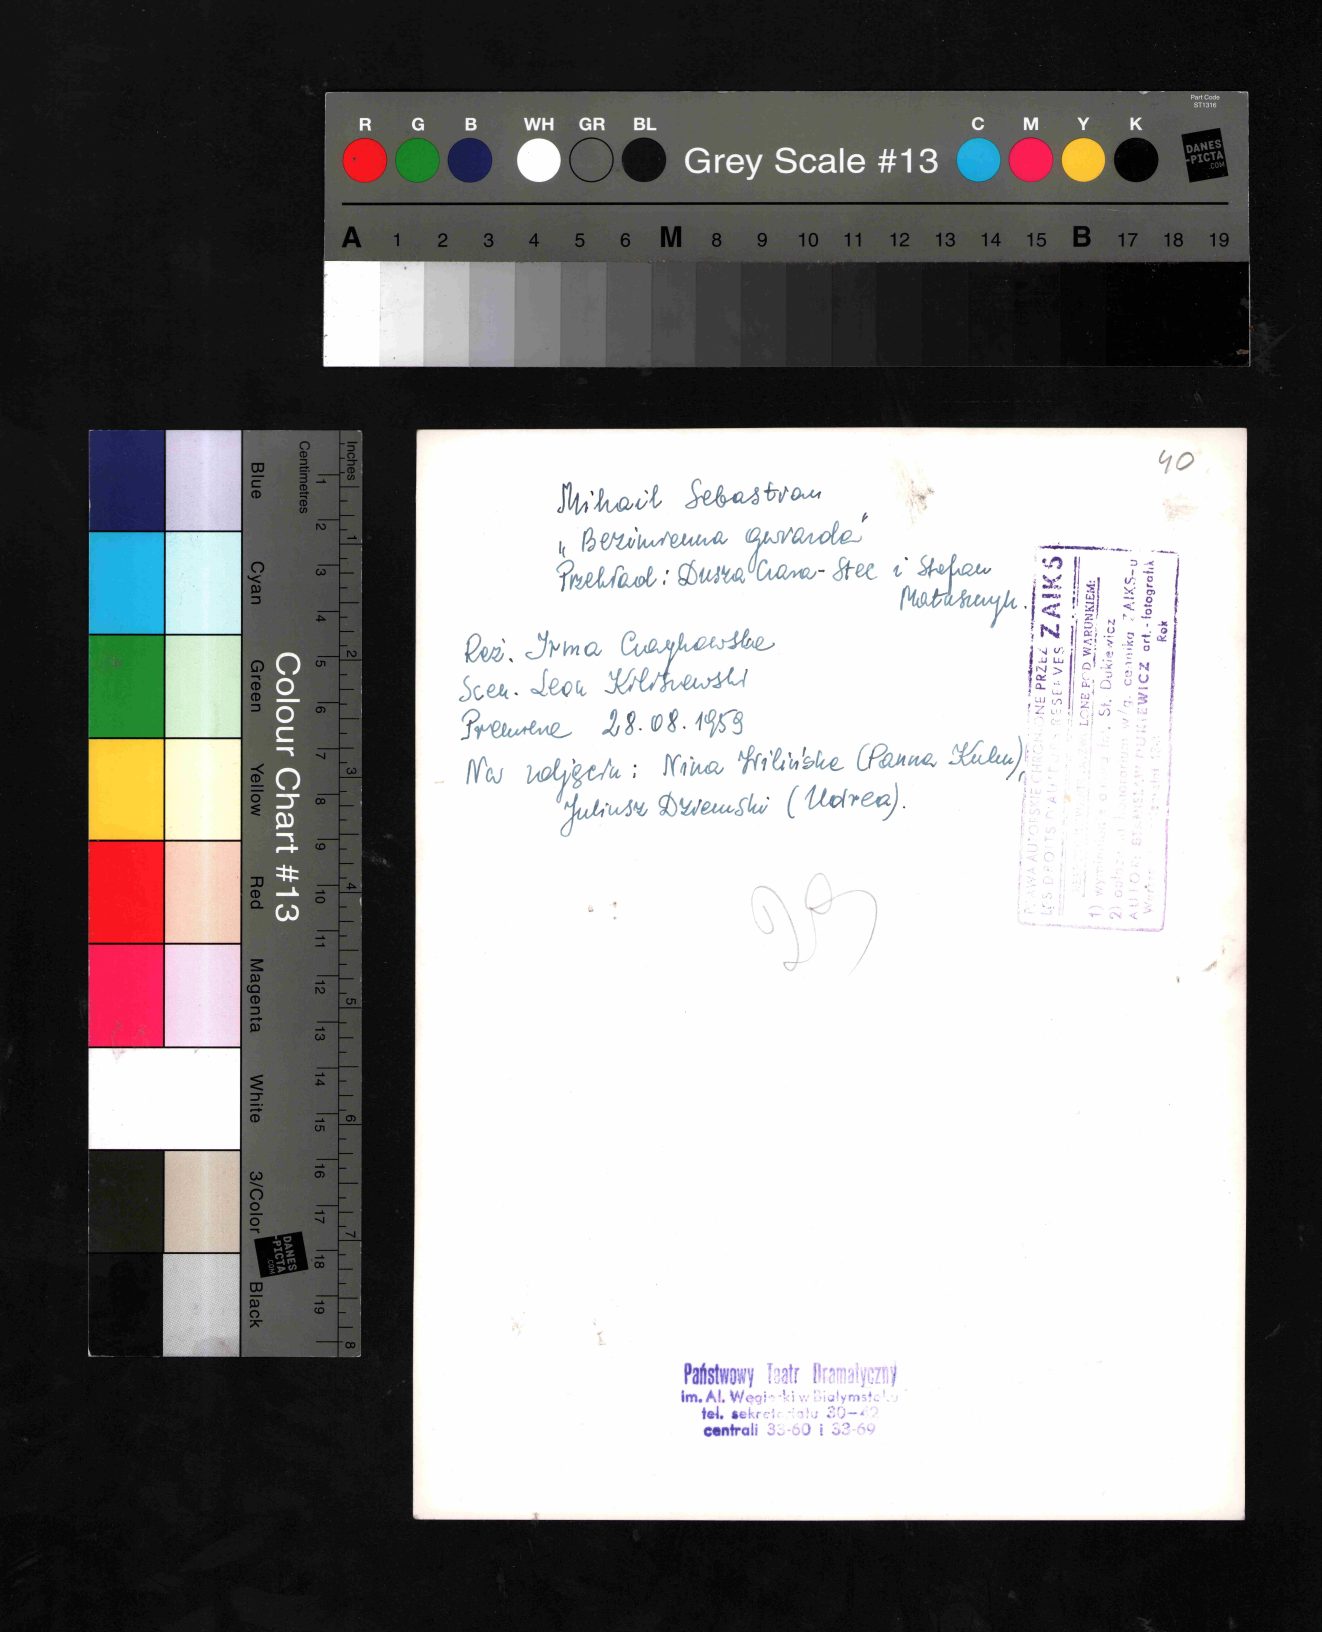 Part Code
ST1316
R G B WH GR BL Grey Scale #13 C M Y K
DANES
-PICTA
.COM
A 1 2 3 4 5 6 M 8 9 10 11 12 13 14 15 B 17 18 19
Colour Chart #13
Blue
Cyan
Green
Yellow
Red
Magenta
White
3/Color
Black
Centimetres
1 2 3 4 5 6 7 8 9 10 11 12 13 14 15 16 17 18 19
Inches
1 2 3 4 5 6 7 8
DANES
-PICTA
.COM
40
Mihail Sebastian
„Bezimienna gwiazda"
Przekład: Dusza Czara-Stec i Stefan
Matuszczyk.
Reż. Irma Czaykowska
Scen. Leon Kiliszewski
Premiera 28.08.1959
Na zdjęciu: Nina Wilińska (Panna Kuku),
Juliusz Dziemski (Udrea).
PRAWA AUTORSKIE CHRONIONE PRZEZ ZAIKS
LES DROITS D'AUTEUR RESERVES
POD WARUNKIEM:
1) St. Dukiewicz
2) w/g. cennika ZAIKS-u
AUTOR: DUKIEWICZ art.-fotografik
Rok
Państwowy Teatr Dramatyczny
im. Al. Węgierki w Białymstoku
tel. sekretariatu 30-42
centrali 33-60 i 33-69